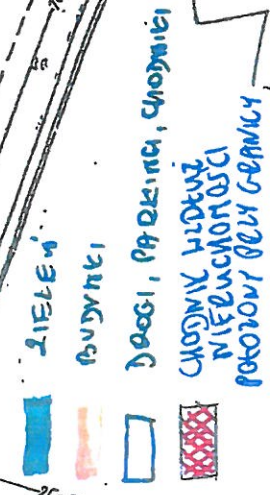 ZIELEŃ
BUDYNKI
DROGI, PARKINGI, CHODNIKI
CHODNIK WZDŁUŻ
NIERUCHOMOŚCI
POŁOŻONY PRZY GRANICY